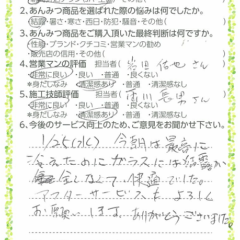 2.あんみつ商品を選ばれた際の悩みは何でしたか。
結露・暑さ・寒さ・西日・防犯・騒音・その他(
3.あんみつ商品をご購入頂いた最終判断は何ですか。
性能・ブランド・クチコミ・営業マンの勧め
販売店の信用・その他(
4.営業マンの評価 担当者( さん)
非常に良い・良い・普通・良くない
*身だしなみ 清潔感あり・普通・清潔感なし
5.施工技師評価 担当者( 市川 さん)
非常に良い・良い・普通・良くない
*身だしなみ 清潔感あり・普通・清潔感なし
6.今後のサービス向上のため、ご意見をお聞かせ下さい。
1/25(水) 今朝は最高に
冷えたのにガラスには結露が
全くなしで 快適でした。
アフターサービスもよろしく
お願いします。ありがとうございました